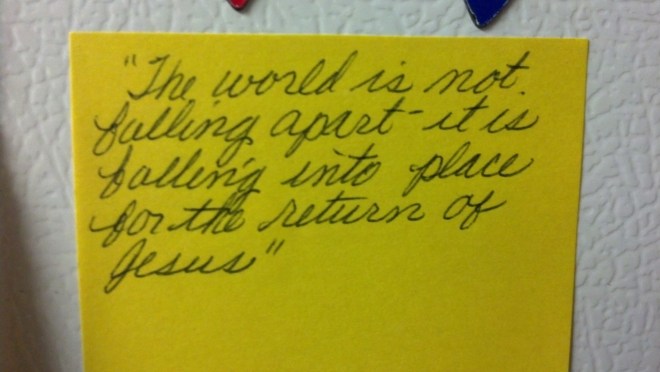 "The world is not
falling apart - it is
falling into place
for the return of
Jesus"